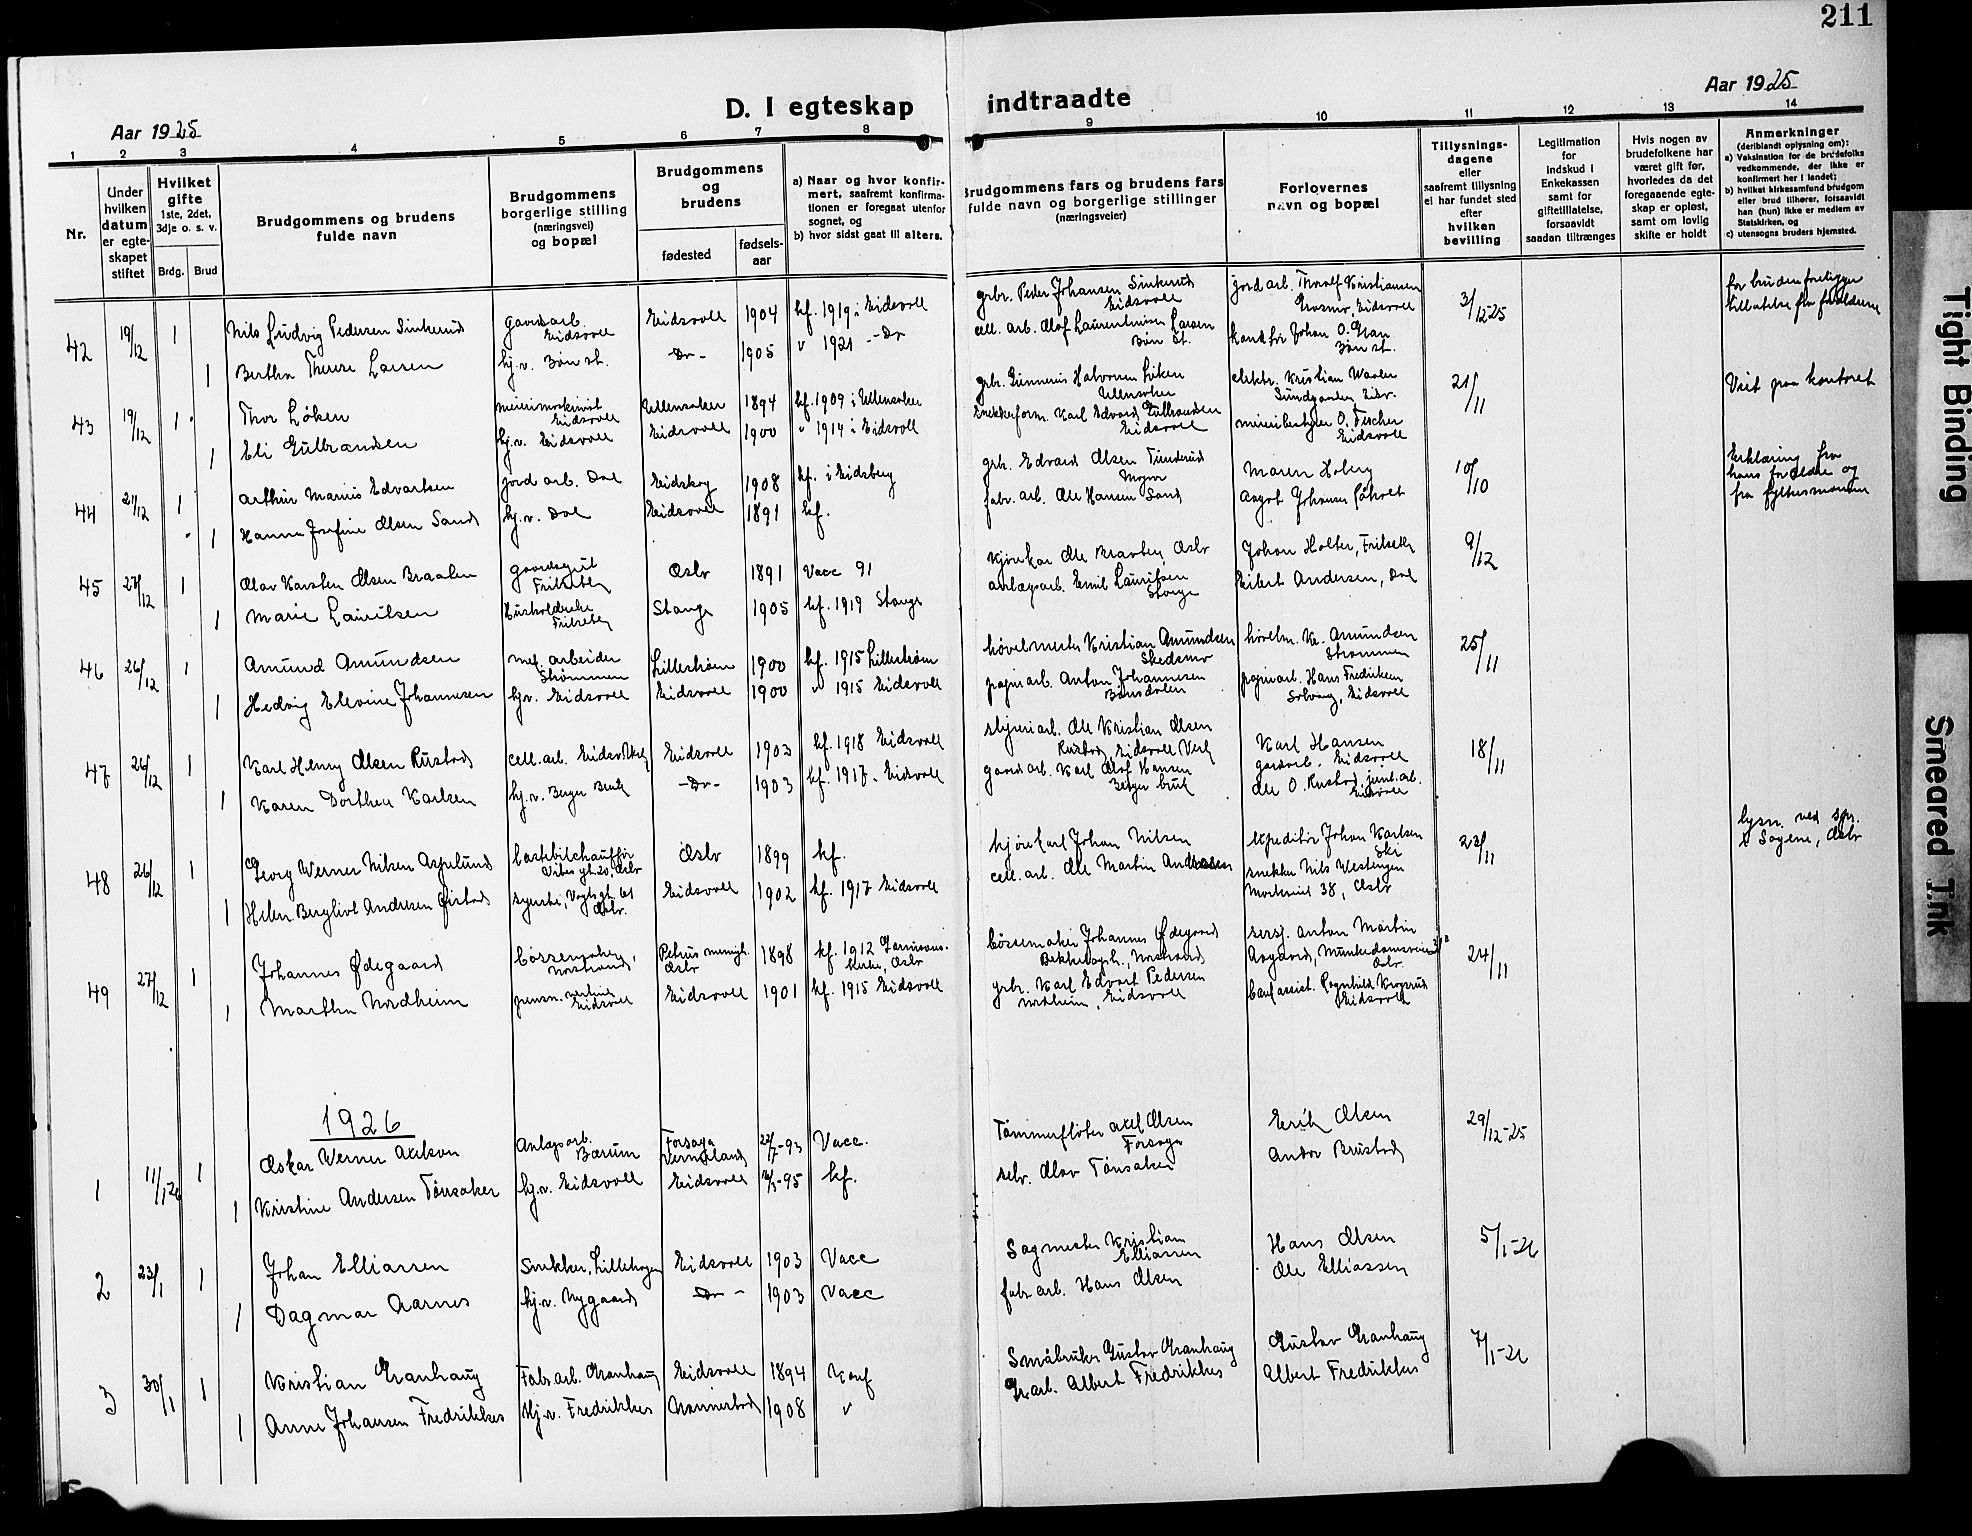 211
Aar 1925
D. I egteskap indtraadte
Aar 1925
1 2 3 4 5 6 7 8 9 10 11 12 13 14
Nr.
Under hvilken datum er egteskapet stiftet
Hvilket gifte
1ste, 2det, 3dje o. s. v.
Brdg. Brud
Brudgommens og brudens fulde navn
Brudgommens borgerlige stilling (næringsvei) og bopæl
Brudgommens og brudens
fødested
fødselsaar
a) Naar og hvor konfirmert, saafremt konfirmationen er foregaat utenfor sognet, og
b) hvor sidst gaat til alters.
Brudgommens fars og brudens fars fulde navn og borgerlige stillinger (næringsveier)
Forlovernes navn og bopæl
Tillysningsdagene eller saafremt tillysning ei har fundet sted efter hvilken bevilling
Legitimation for indskud i Enkekassen samt for giftetillatelse, forsaavidt saadan tiltrænges
Hvis nogen av brudefolkene har været gift før, hvorledes da det foregaaende egteskap er opløst, samt om lovlig skifte er holdt
Anmerkninger
(deriblandt oplysning om):
a) Vaksination for de brudefolks vedkommende, der ikke er konfirmert her i landet;
b) hvilket kirkesamfund brudgom eller brud tilhører, forsaavidt han (hun) ikke er medlem av Statskirken, og
c) utensogns bruders hjemsted.
42 19/12 1 Nils Ludvig Pedersen Sinkerud gaardsarb. Eidsvoll Eidsvoll 1904 kf. 1919 i Eidsvoll grbr. Peder Johansen Sinkerud Eidsvoll jord arb. Thoralf Kristiansen Eidsvoll 3/12-25 for bruden foreligger tillatelse fra forældrene
1 Bertha Therese Larsen hj.v. Bøn st. -Do- 1905 " 1921 -Do cell. arb. Olof Laurentiusen Larsen Bøn St. Johan O. Bøn st.
43 19/12 1 Thor Løken meierimaskinist Eidsvoll Ullensaker 1894 kf. 1909 i Ullensaker grbr. Gunnerius Halvorsen Løken Ullensaker elektr. Kristian Waaler Sundgaarden Eidsv. 21/11 Viet paa kontoret
1 Eli Gulbrandsen hj.v. Eidsvoll Eidsvoll 1900 " 1914 i Eidsvoll Snekkerform. Karl Edvard Gulbrandsen Eidsvoll meieribestyrer O. Fischer Eidsvoll
44 21/12 1 Arthur Marius Edvartsen jord arb. Dal Eidskog 1908 kf. i Eidsberg grb. Edvard Olsen Tunderud Maren Hoberg 10/10 Erklæring fra hans forældre og fra fylkesmannen
1 Hanna Josefine Olsen Sand hj.v. Dal Eidsvoll 1891 kf. fabr. arb. Ole Hansen Sand Aagot Johansen
45 27/12 1 Olav Karsten Olsen Braaten gaardsgut Oslo 1891 Vacc 91 kjørekar Ole Braaten, Oslo Johan Holter, 9/12
1 Marie Lauritsen Stange 1905 kf. 1919 Stange anlægsarb. Emil Lauritsen Stange Eilert Andersen, Dal
46 26/12 1 Amund Amundsen mek. arbeider Strømmen Lillestrøm 1900 kf. 1915 Lillestrøm høvelmester Kristian Amundsen Skedsmo høvelm. Kr. Amundsen Strømmen 25/11
1 Hedvig Elevine Johannesen hj.v. Eidsvoll Eidsvoll 1900 " 1915 Eidsvoll papirarb. Anton Johannesen Bønsdalen papirarb. Hans Fredriksen Solvang, Eidsvoll
47 26/12 1 Karl Henry Olsen Rustad cell. arb. Eidsv. Verk Eidsvoll 1903 kf. 1918 Eidsvoll Ole Kristian Olsen Rustad, Eidsvoll Verk Karl Hansen gardarb. Eidsvoll 18/11
1 Karen Dorthea Karlsen hj.v. Berger Bruk -Do- 1903 kf. 1917. Eidsvoll gaard arb. Karl Olaf Hansen Berger bruk Ole O. Rustad, jernb. arb. Eidsvoll
48 26/12 1 Georg Werner Nilsen Aspelund lastebilchauffør Vibes gt. 20, Oslo Oslo 1899 kf. kjørekarl Johan Nilsen expeditør Johan Karlsen Ski 22/11 lysn. ved spr. i Sagene, Oslo
1 Helen Bergliot Andersen syerske, Vogtsgt. 61 Oslo. Eidsvoll 1902 kf. 1917 Eidsvoll cell. arb. Ole Martin Andersen snekker Nils Westengen 38, Oslo
49 27/12 1 Johannes Ødegaard bøssemaker, Nordstrand Petrus menigh. Oslo 1898 kf. 1912 Garnisons-kirken, Oslo bøssemaker Johannes Ødegaard Bekkelagsh., Nordstrand sersj. Anton Martin Aagaard, Munkedamsveien Oslo 24/11
1 Martha Nordheim Eidsvoll Eidsvoll 1901 kf. 1915 Eidsvoll grbr. Karl Edvart Pedersen Nordheim, Eidsvoll assist. Ragnhild Krogsrud Eidsvoll
1926
1 11/1 26 1 Oskar Werner Axelson Anlægsarb. Bærum Forsaga Vermeland 22/7-93 Vacc. Tømmerfløter Axel Olsen Forsaga Erik Olsen 29/12-25
1 Kristine Andersen Tønsaker hj.v. Eidsvoll Eidsvoll -95 kf. selv. Olav Tønsaker Andor Brustad
2 23/1 1 Johan Elliassen Snekker, Lillehagen Eidsvoll 1903 Vacc Sagmester Kristian Elliassen Hans Olsen 5/1-26
1 Dagmar Aarnes hj.v. Nygaard -Do- 1903 Vacc fabr arb. Hans Olsen Ole Elliassen
3 30/1 1 Kristian Granhaug Fabr arb. Granhaug Eidsvoll 1894 Konf Småbruker Gustav Granhaug Gustav Granhaug 7/1-26
1 Anne Johansen Fredrikkes Hj.v. Fredrikkes 1908 " Albert Fredrikkes Albert Fredrikkes
Tight Binding
Smeared Ink